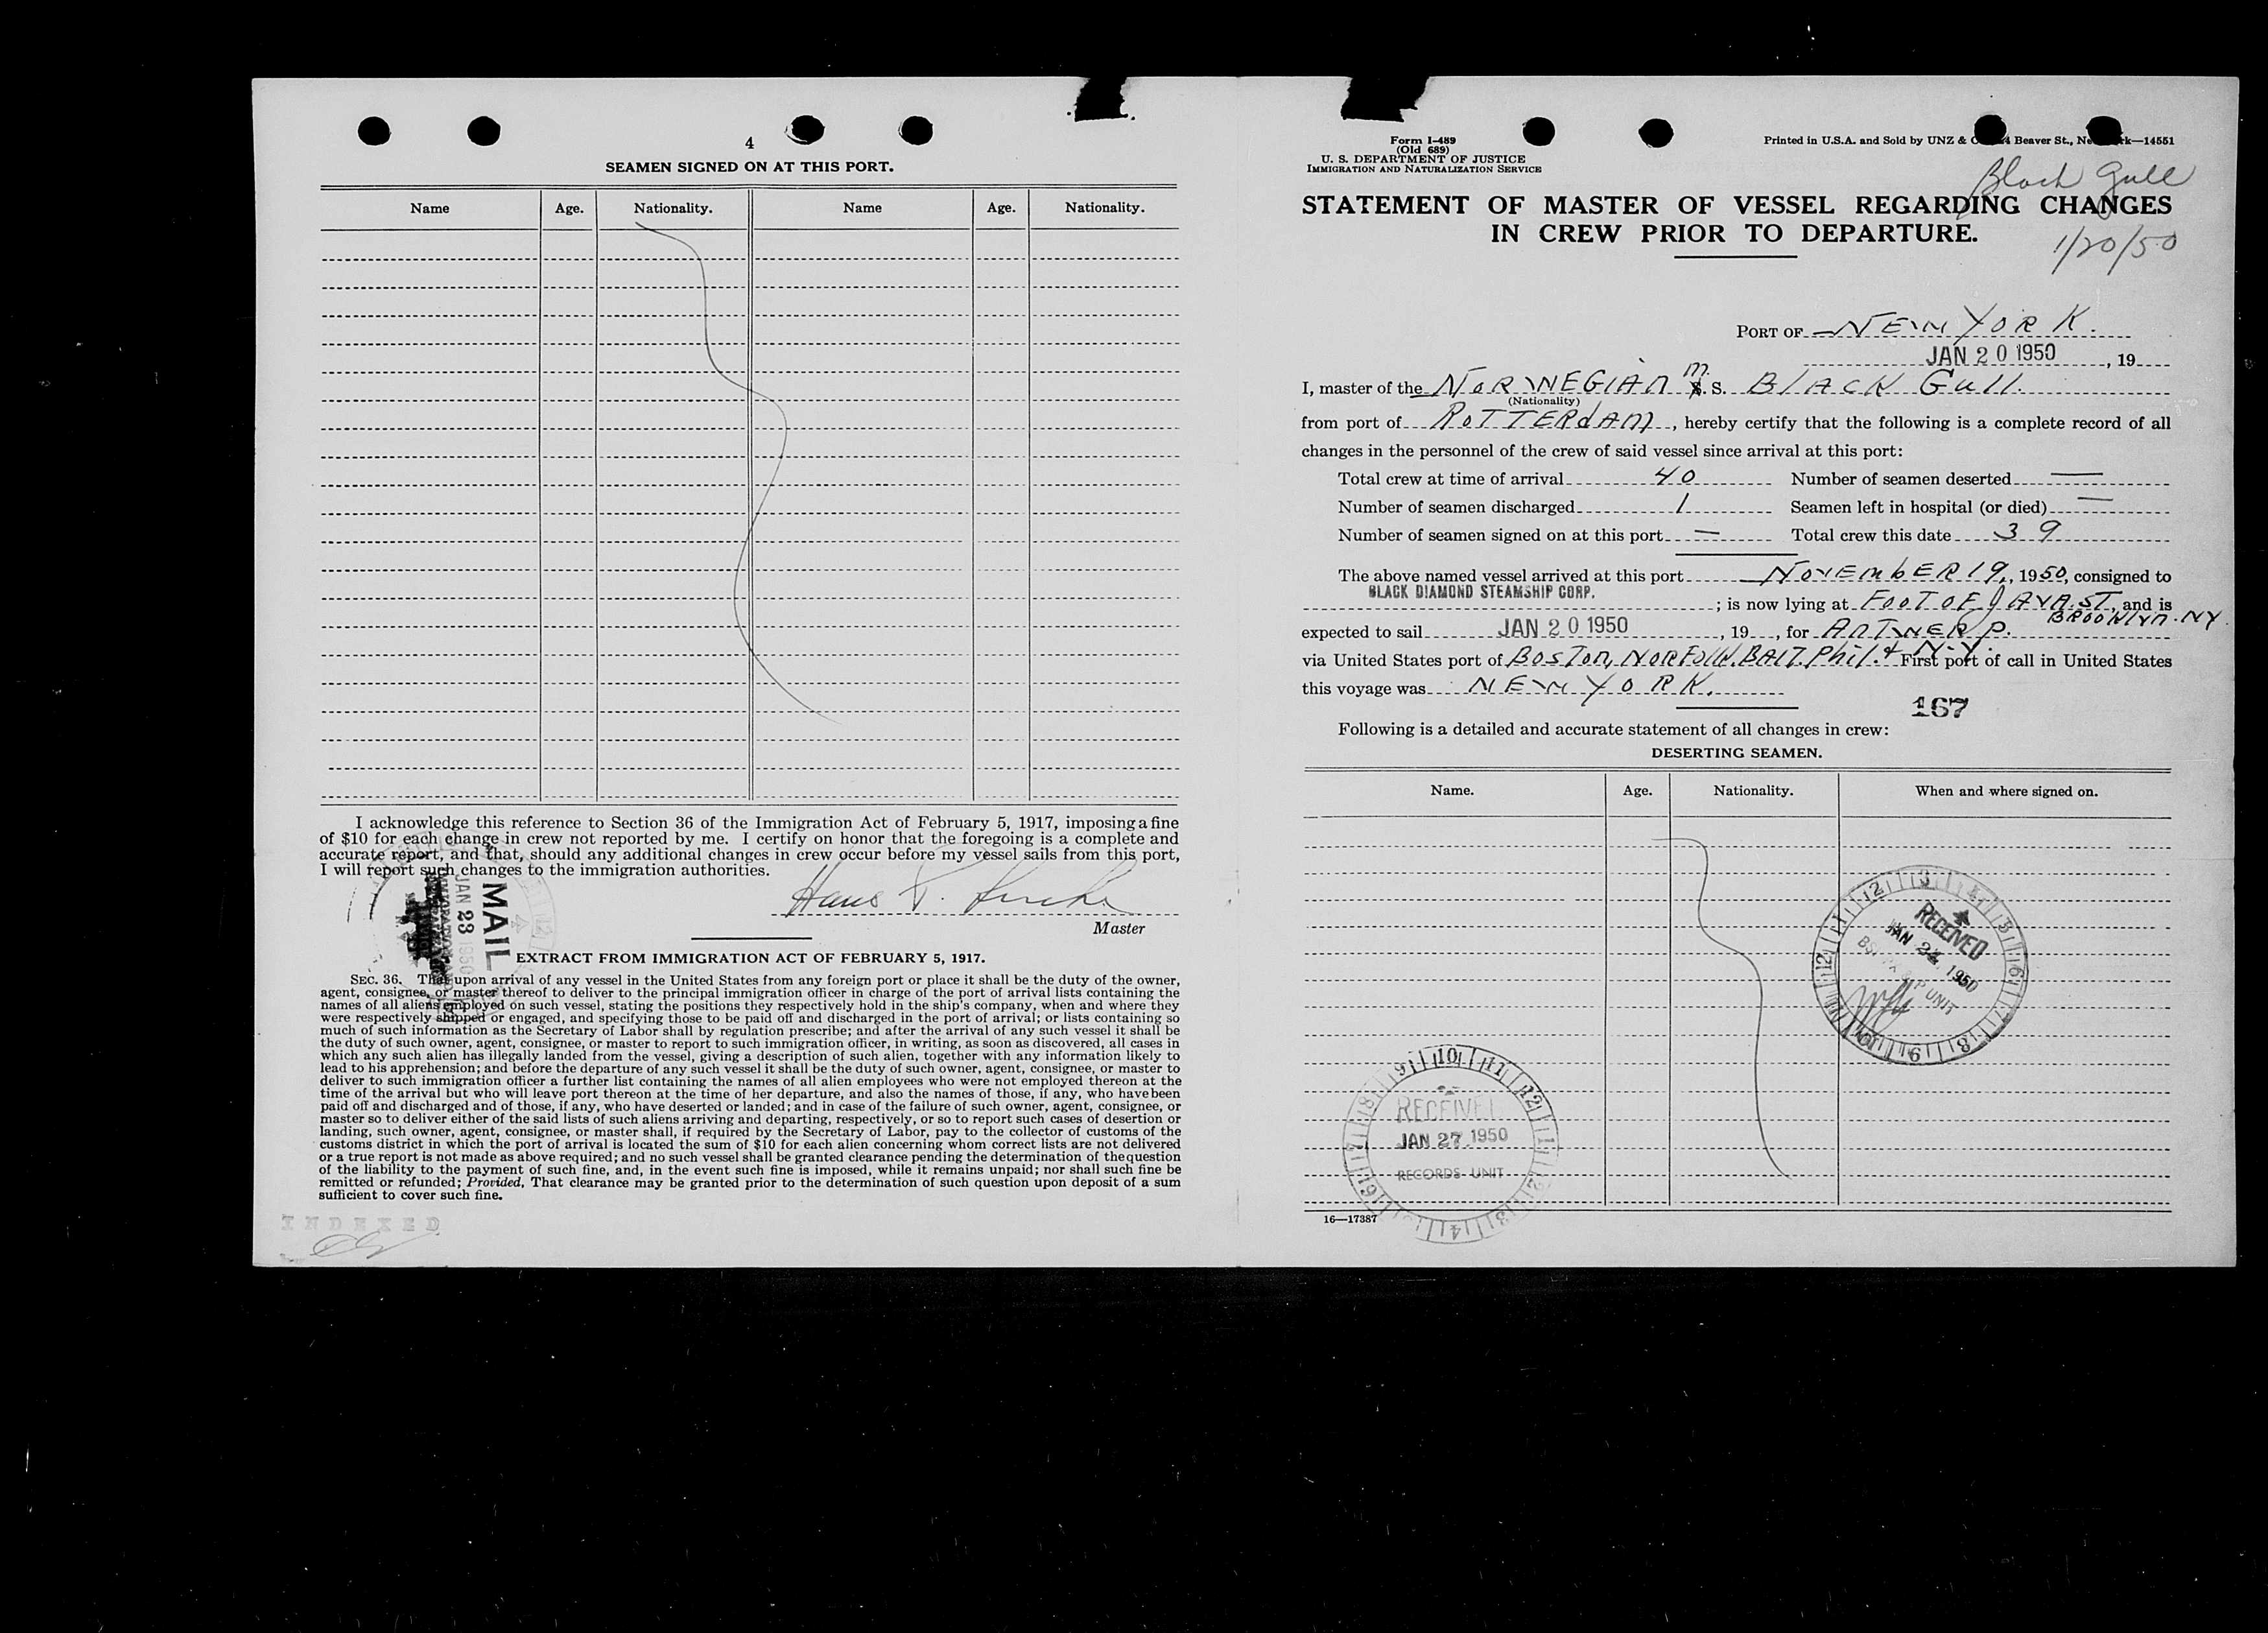 4
SEAMEN SIGNED ON AT THIS PORT.
Name Age. Nationality. Name Age. Nationality.
I acknowledge this reference to Section 36 of the Immigration Act of February 5, 1917, imposing a fine
of $10 for each change in crew not reported by me. I certify on honor that the foregoing is a complete and
accurate report, and that, should any additional changes in crew occur before my vessel sails from this port,
I will report such changes to the immigration authorities.
Hans P.
Master
MAIL
JAN 23 1950
EXTRACT FROM IMMIGRATION ACT OF FEBRUARY 5, 1917.
SEC. 36. That upon arrival of any vessel in the United States from any foreign port or place it shall be the duty of the owner,
agent, consignee, or master thereof to deliver to the principal immigration officer in charge of the port of arrival lists containing the
names of all aliens employed on such vessel, stating the positions they respectively hold in the ship's company, when and where they
were respectively shipped or engaged, and specifying those to be paid off and discharged in the port of arrival; or lists containing so
much of such information as the Secretary of Labor shall by regulation prescribe; and after the arrival of any such vessel it shall be
the duty of such owner, agent, consignee, or master to report to such immigration officer, in writing, as soon as discovered, all cases in
which any such alien has illegally landed from the vessel, giving a description of such alien, together with any information likely to
lead to his apprehension; and before the departure of any such vessel it shall be the duty of such owner, agent, consignee, or master to
deliver to such immigration officer a further list containing the names of all alien employees who were not employed thereon at the
time of the arrival but who will leave port thereon at the time of her departure, and also the names of those, if any, who have been
paid off and discharged and of those, if any, who have deserted or landed; and in case of the failure of such owner, agent, consignee, or
master so to deliver either of the said lists of such aliens arriving and departing, respectively, or so to report such cases of desertion or
landing, such owner, agent, consignee, or master shall, if required by the Secretary of Labor, pay to the collector of customs of the
customs district in which the port of arrival is located the sum of $10 for each alien concerning whom correct lists are not delivered
or a true report is not made as above required; and no such vessel shall be granted clearance pending the determination of the question
of the liability to the payment of such fine, and, in the event such fine is imposed, while it remains unpaid; nor shall such fine be
remitted or refunded; Provided, That clearance may be granted prior to the determination of such question upon deposit of a sum
sufficient to cover such fine.
INDEXED
Form I-489
(Old 689)
U. S. DEPARTMENT OF JUSTICE
IMMIGRATION AND NATURALIZATION SERVICE
Printed in U.S.A. and Sold by UNZ & Beaver St., 14551
Black Gull
STATEMENT OF MASTER OF VESSEL REGARDING CHANGES
IN CREW PRIOR TO DEPARTURE.
1/20/50
PORT OF NEW YORK.
JAN 20 1950, 19
I, master of the NORWEGIAN M. S. BLACK GULL.
(Nationality)
from port of ROTTERdAM, hereby certify that the following is a complete record of all
changes in the personnel of the crew of said vessel since arrival at this port:
Total crew at time of arrival 40 Number of seamen deserted —
Number of seamen discharged 1 Seamen left in hospital (or died) —
Number of seamen signed on at this port — Total crew this date 39
The above named vessel arrived at this port NOVEMbER 19, 1950, consigned to
BLACK DIAMOND STEAMSHIP CORP. ; is now lying at FOOT OF JAVA. ST, and is
BROOKlyn. NY
expected to sail JAN 20 1950, 19, for ANTWERP.
via United States port of BOSTON, NORFOLK. BALT. Phil. & N.Y. First port of call in United States
this voyage was NEW YORK.
167
Following is a detailed and accurate statement of all changes in crew:
DESERTING SEAMEN.
Name. Age. Nationality. When and where signed on.
RECEIVED
JAN 24 1950
UNIT
RECEIVED
JAN 27 1950
RECORDS UNIT
16—17387